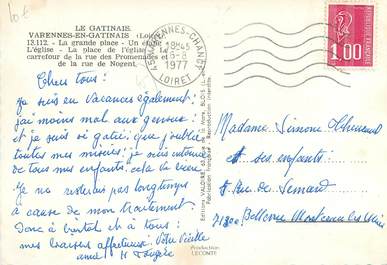 10 €
LE GATINAIS.
VARENNES-EN-GATINAIS (Loiret)
13.112. - La grande place - Un
L'église - La place de l'église
carrefour de la rue des Promenades et
de la rue de Nogent.
45 VARENNES-CHANGY
18H45
6-8
1977
LOIRET
1.00
Chers tous !
Je suis en vacances également !
j'ai moins mal aux genoux : et
je suis si gâtée que j'oublie
toutes mes misères ; je suis entourée
de tous mes enfants.
Je ne resterai pas longtemps
à cause de mon traitement.
Donc à bientôt et à tous :
mes baisers affectueux. Votre vieille
amie H
Madame Simone
et ses enfants
8 Rue de
71300 Montceau les Mines
Editions VALOIRE
BLOIS
Fabrication Française - Reproduction interdite
Production
LECONTE